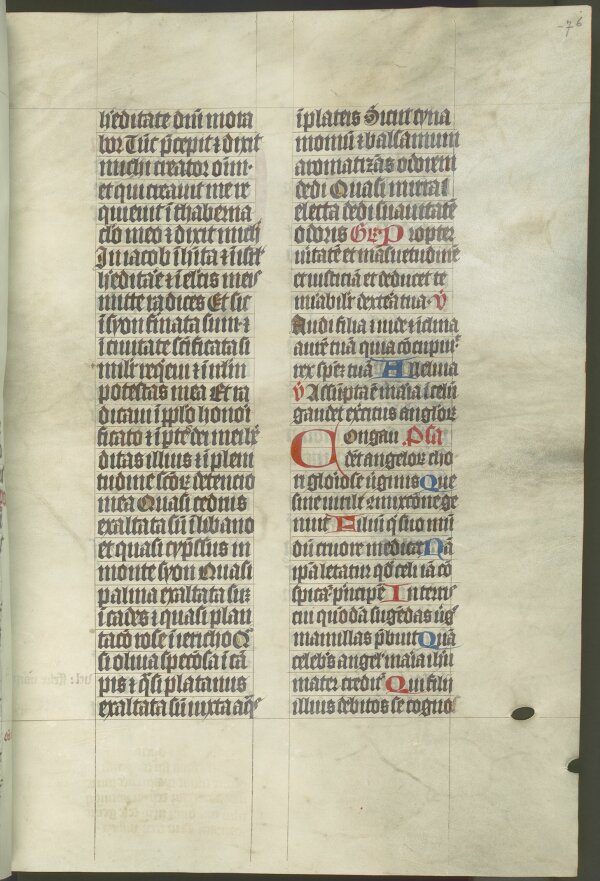 76
h'editate dñi mora
bor Tūc p̄cepit ⁊ dixit
michi creator oīm·
et qui creauit me re
quieuit ī thaberna
clo meo ⁊ dixit michi
In iacob īh'ita ⁊ ī isr̄l
h'editare ⁊ ī elc̄is meis
mitte radices Et sic
ī syon firmata sum ⁊
ī ciuitate sc̄ificata si
milit' req'eui ⁊ ī ihr̄lm
potestas mea Et ra
dicaui ī pp̄lo honori
ficato ⁊ ī p̄te dei mei h'e
ditas illius ⁊ ī pleni
tudine sc̄oꝝ detencio
mea Quasi cedrus
exaltata sū ī libano
et quasi cyp̄ssus in
monte syon Quasi
palma exaltata sū
ī cades ⁊ quasi plan
tacō rose ī iericho Q̄
si oliua specōsa ī cā
pis ⁊ q̄si platanus
exaltata sū iuxta aq̄s
ī plateis Sicut cyna
momū ⁊ balsamum
aromatizās odorem
dedi Quasi mirra
electa dedi suauitatē
odoris GR̄ Propter
uitatē et mansuetudinē
et iusticiā et deducet te
mirabilit' dext'a tua ℣
Audi filia ⁊ uide ⁊ īclina
aurē tuā quia cōcupiu'
rex sp̄em tuā Alleluia
℣ Assūpta ē maria ī celū
gaudet ex'citus angl'oꝝ
Congau Psa
dēt angeloꝝ cho
ri gl'oiose uirginis Que
sine uirili ⹁mixtōne ge
nuit Filiū q' suo mū
dū cruore medicat Nā
ip̄a letatur q̄d celi iā cō
spicat' p'ncipē In terris
cui quōdā sugēdas uirg
mamillas p̄buit Quā
celeb's angel' maria ih'u
mater credit' Qui filij
illius debitos se cogno